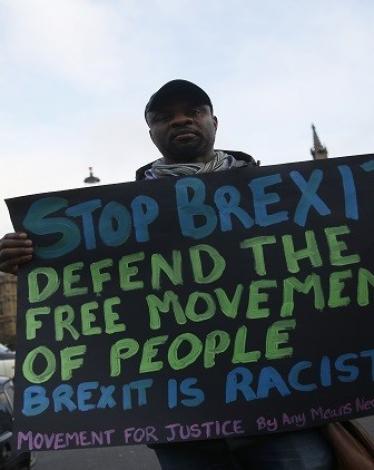 STOP BREXIT
DEFEND THE
FREE MOVEMEN
OF PEOPLE
BREXIT IS RACIST
MOVEMENT FOR JUSTICE By Any Means Nec